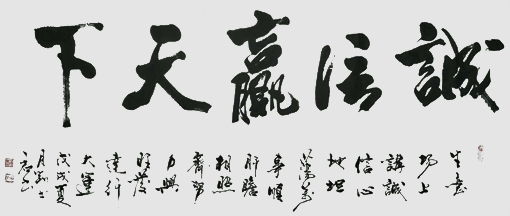 誠信贏天下
生意
場上
講誠
信心
地坦
蕩萬
事順
肝膽
相照
齊努
力興
旺發
達行
大運
戊戌夏
月